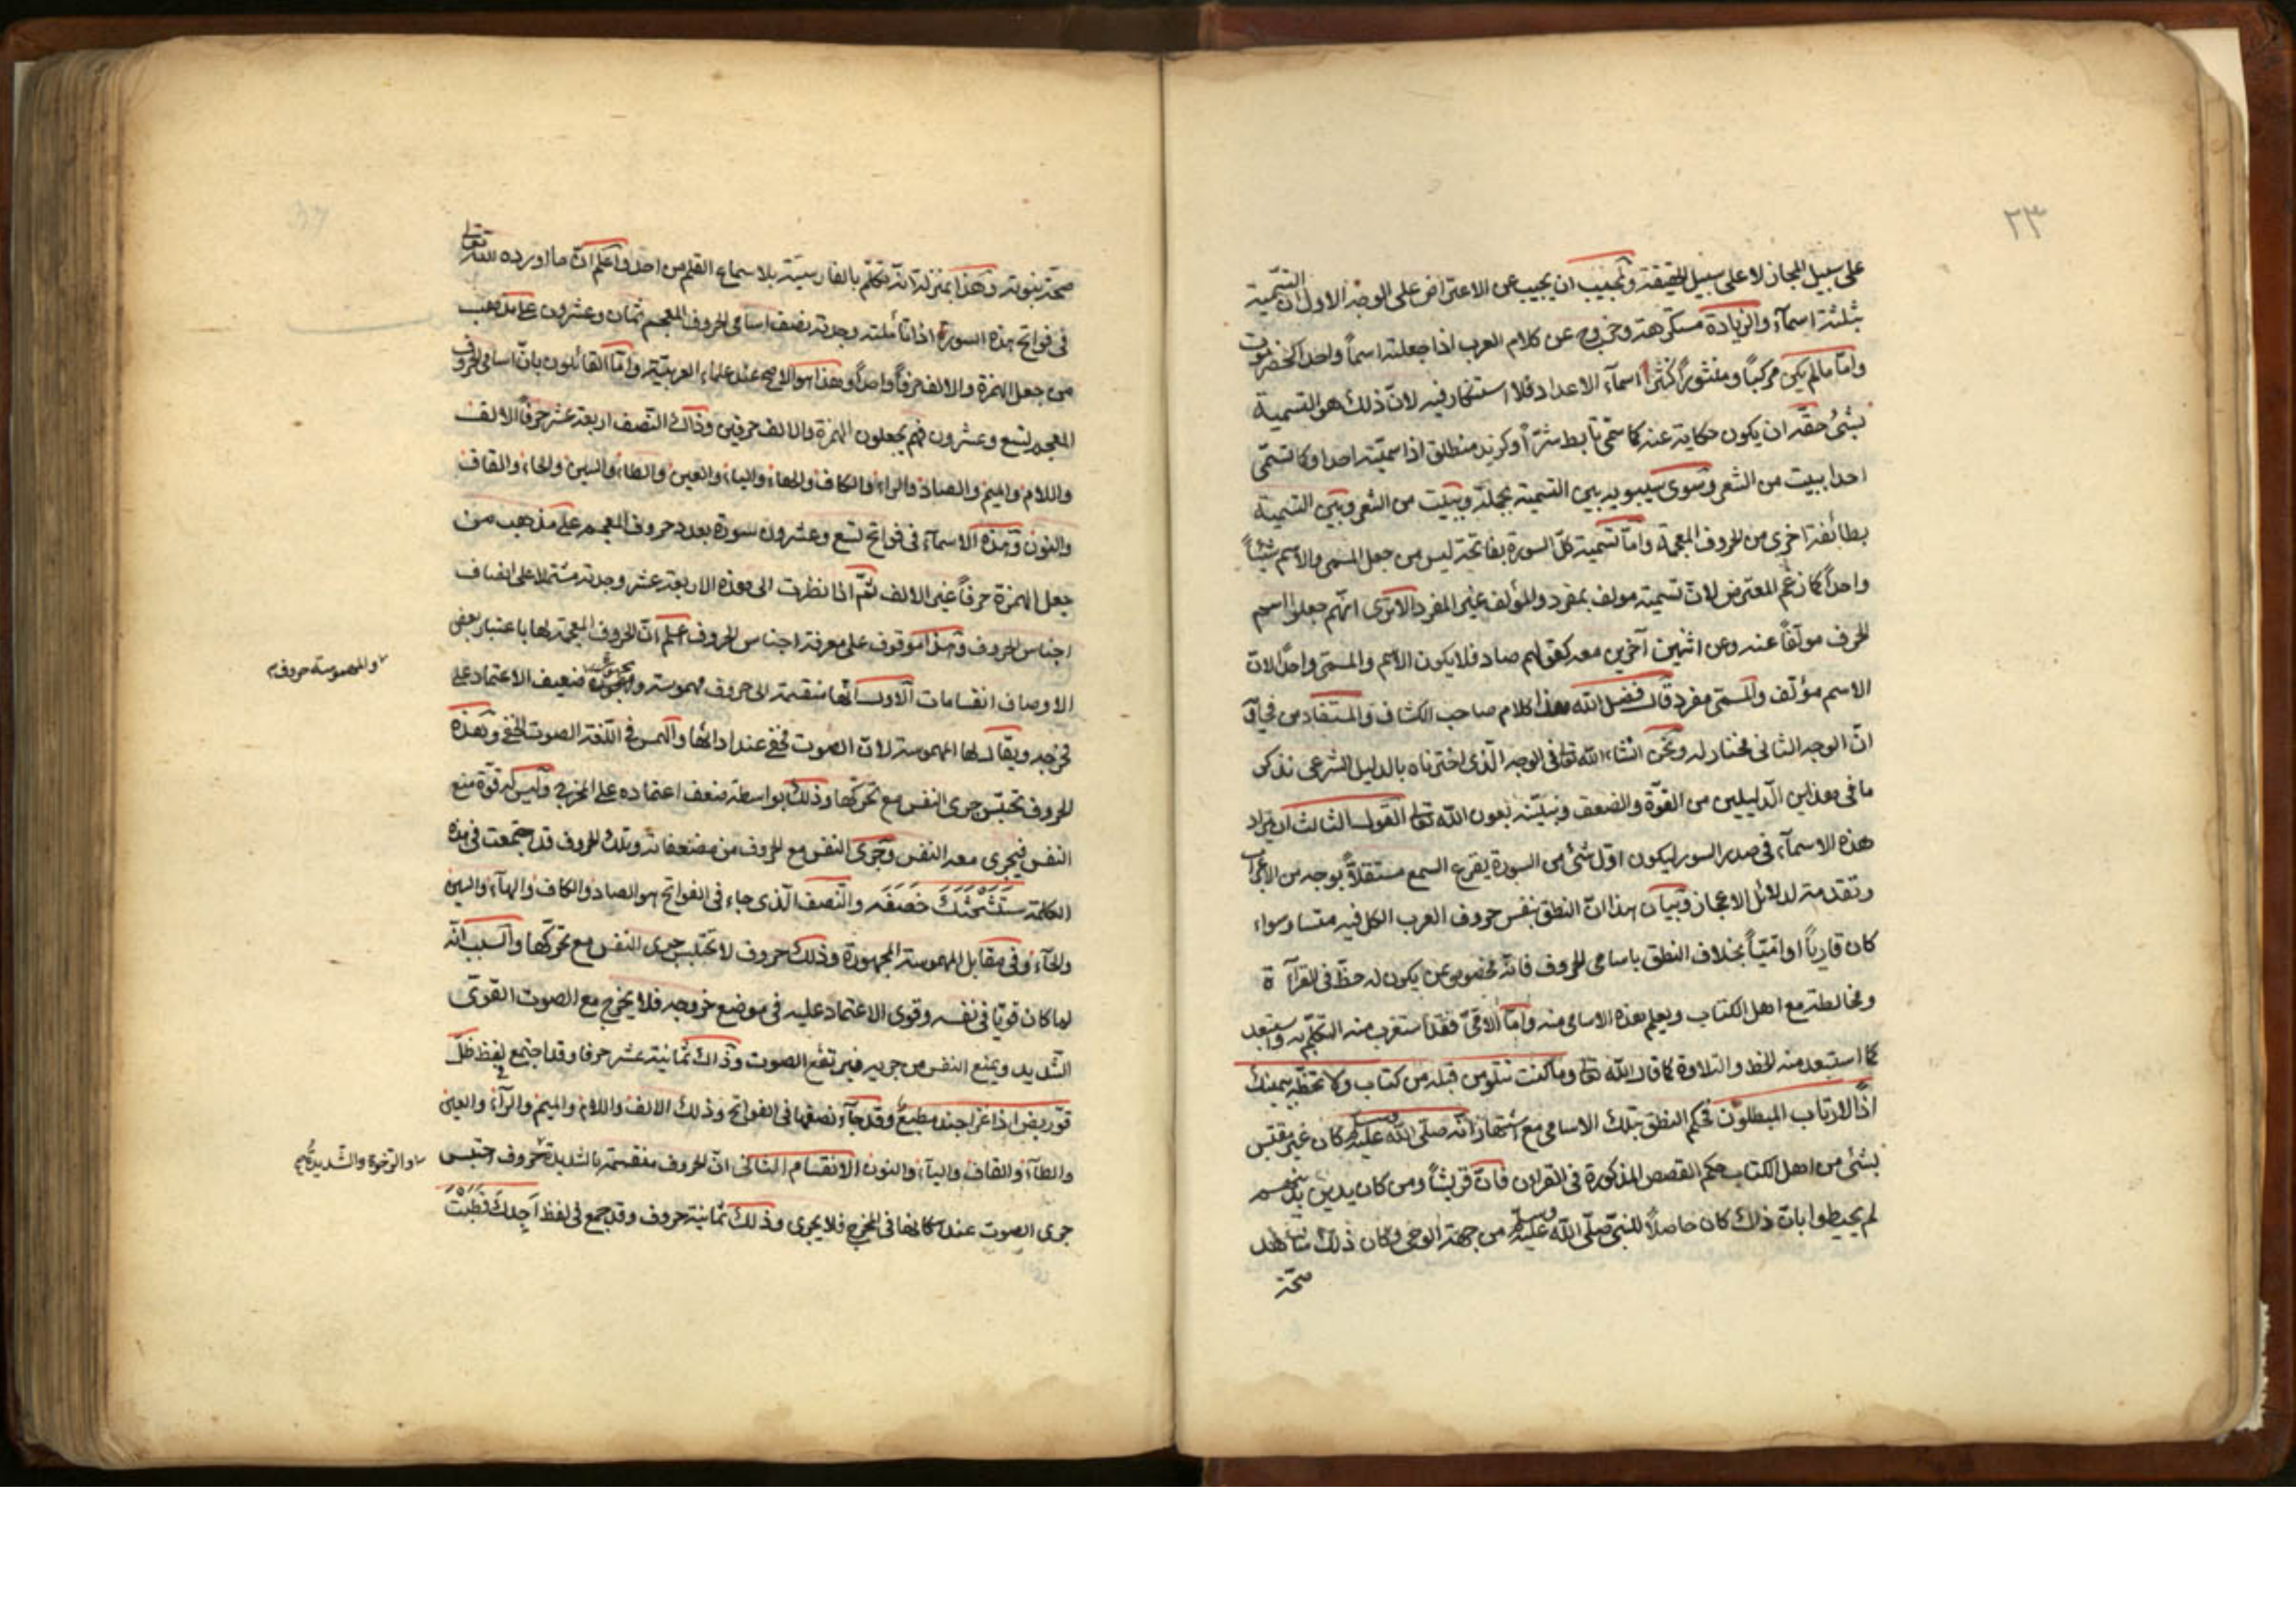 ٢٣
على سبيل المجاز لا على سبيل الحقيقة ونجيب ان يجيب عن الاعتراض على الوجه الاول ان التسمية
بثلثة اسمآء والزيادة مستكرهة وخروج عن كلام العرب اذا جعلته اسماً واحدا كحضرموت
وامّا مالم يكن مركباً ومنثوراً كنثر اسمآء الاعداد فلا استنكار فيه لانّ ذلك هو التسمية
بشئ حقه ان يكون حكاية عنه كما سمّى تأبط شرّاً وكزيد منطلق اذا سميّته احدا وكا تسمّى
احدا ببيت من الشعر وسوى سيبويه بين التسمية بجملة وببيت من الشعر وبين التسمية
بطائفة اخرى من الحروف المعجمة وامّا تسمية كلّ السورة بفاتحة ليس من جعل المسمى والاسم شيئاً
واحداً كما زعم المعترض لانّ تسمية مولف بمفرد والمؤلف غير المفرد الا ترى انّهم جعلوا اسم
الحرف مولفاً عنه وعن اثنين آخرين معه كقولهم صاد فلا يكون الاسم والمسمى واحداً لانّ
الاسم مؤلف والمسمّى مفرد قال فضل الله هذا كلام صاحب الكشاف والمستفاد من فحواه
انّ الوجه الثانى مختار له ونحن انشاء الله تعالى فى الوجه الّذى اخترناه بالدليل الشرعى نذكر
ما فى هذين الدّليلين من القوّة والضعف ونبيّنه بعون الله تعالى القول الثالث ان يراد
هذه الاسمآء فى صدر السور ليكون اوّل شئ من السورة يقرع السمع مستقلاً بوجه من الاعراب
وتقدمة لدلائل الاعجاز وبيان هذا انّ النطق بنفس حروف العرب الكل فيه متساو سواء
كان قارياً او امّيّاً بخلاف النطق باسامى الحروف فانّه مخصوص بمن يكون له حظّ فى القرآءة
ومخالطة مع اهل الكتاب ويعلم هذه الاسامى منه وامّا الامّىّ فقد استغرب منه التكلّم به واستبعد
كما استبعد منه الخط والتلاوة كما قال الله تعالى وما كنت تتلو من قبله من كتاب ولا تخطّه بيمينك
اذاً لارتاب المبطلون فحكم النطق بتلك الاسامى مع اشتهار انّه صلّى الله عليه وسلم كان غير مقتبس
بشئ من اهل الكتاب حكم القصص المذكورة فى القران فانّ قريشاً ومن كان يدين بدينهم
لم يحيطوا بانّ ذلك كان حاصلاً للنبىّ صلّى الله عليه وسلم من جهة الوحى وكان ذلك شاهد
صحّة
صحّة نبوته وهذا بمنزلة انّه تكلّم بالفارسيّة بلا سماع القلم من احد واعلم انّ ما اورده الله تعالى
فى فواتح هذه السورة اذا تأملته وجدته نصف اسامى الحروف المعجم ثمان وعشرون على مذهب
من جعل الهمزة والالف حرفاً واحداً وهذا هو الاصح عند علماء العربيّة وامّا القائلون بانّ اسامى الحروف
المعجم تسع وعشرون فهم يجعلون الهمزة والالف حرفين وذلك النصف اربعة عشر حرفاً الالف
واللام والميم والصاد والراء والكاف والهاء والياء والعين والطاء والسين والحاء والقاف
والنون وهذه الاسمآء فى فواتح تسع وعشرون سورة بعدد حروف المعجم على مذهب من
جعل الهمزة حرفاً غير الالف ثمّ اذا نظرت الى هذه الاربعة عشر وجدته مشتملا على انصاف
اجناس الحروف وهذا موقوف على معرفة اجناس الحروف علم انّ الحروف المعجمة لها باعتبار بعض
الاوصاف انقسامات الاول انّها منقسمة الى حروف مهموسة ومجهورة ضعيف الاعتماد على
مخرجه ويقال لها المهموسة لانّ الصوت يخفى عند ادائها والهمس فى اللّغة الصوت الخفى وهذه
الحروف تحبّس جرى النفس مع تحركها وذلك بواسطة ضعف اعتماده على المخرج وليس له قوّة منع
النفس فيجرى معه النفس وجرى النفس مع الحروف من مضعفاته وتلك الحروف قد اجتمعت فى هذه
الكلمة ستشحثك خصفه والنصف الّذى جاء فى الفواتح هو الصاد والكاف والهآء والسين
والحآء وفى مقابل المهموسة المجهورة وذلك حروف لا تحتبس جرى النفس مع تحركها والسبب انّه
لما كان قويّا فى نفسه وقوى الاعتماد عليه فى موضع خروجه فلا يخرج مع الصوت القوى
الشديد ويمنع النفس من جريه فيرتفع الصوت وذلك ثمانية عشر حرفا وقد اجتمع لفظ ظلّ
قوّ ربض اذ اغزا جند مطيع وقد جآء نصفها فى الفواتح وذلك الالف واللام والميم والرآء والعين
والطآء والقاف واليآء والنون الانقسام الثانى انّ الحروف منقسمة بالشديدة حروف احتبس
جرى الصوت عند اسكانها فى المخرج فلا يجرى وذلك ثمانية حروف وقد جمع فى لفظ اَجِدكَ قَطَبْتَ
والمهموسة حروف
والرّخوة والشّديدة